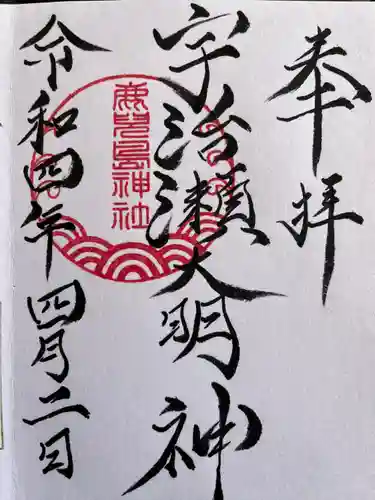 奉拝
宇治瀬大明神
鹿児島神社
令和四年四月二日